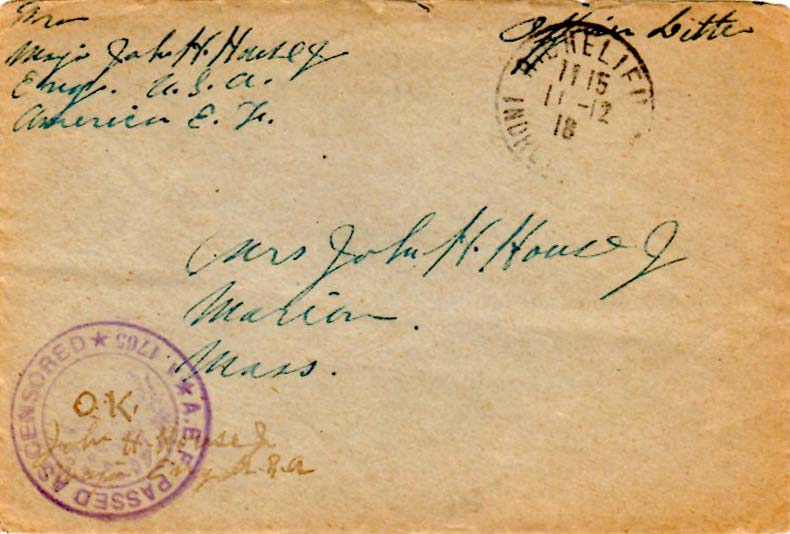 Major John H. House Jr
Engr. U.S.A.
American E. F.
Officer's Letter
RICHELIEU
11 15
11 -12
18
INDRE-
Mrs John H. House Jr
Marion
Mass.
A.E.F. PASSED AS CENSORED ★ 1765 ★
O.K.
John H. House Jr
Major Engr U.S.A